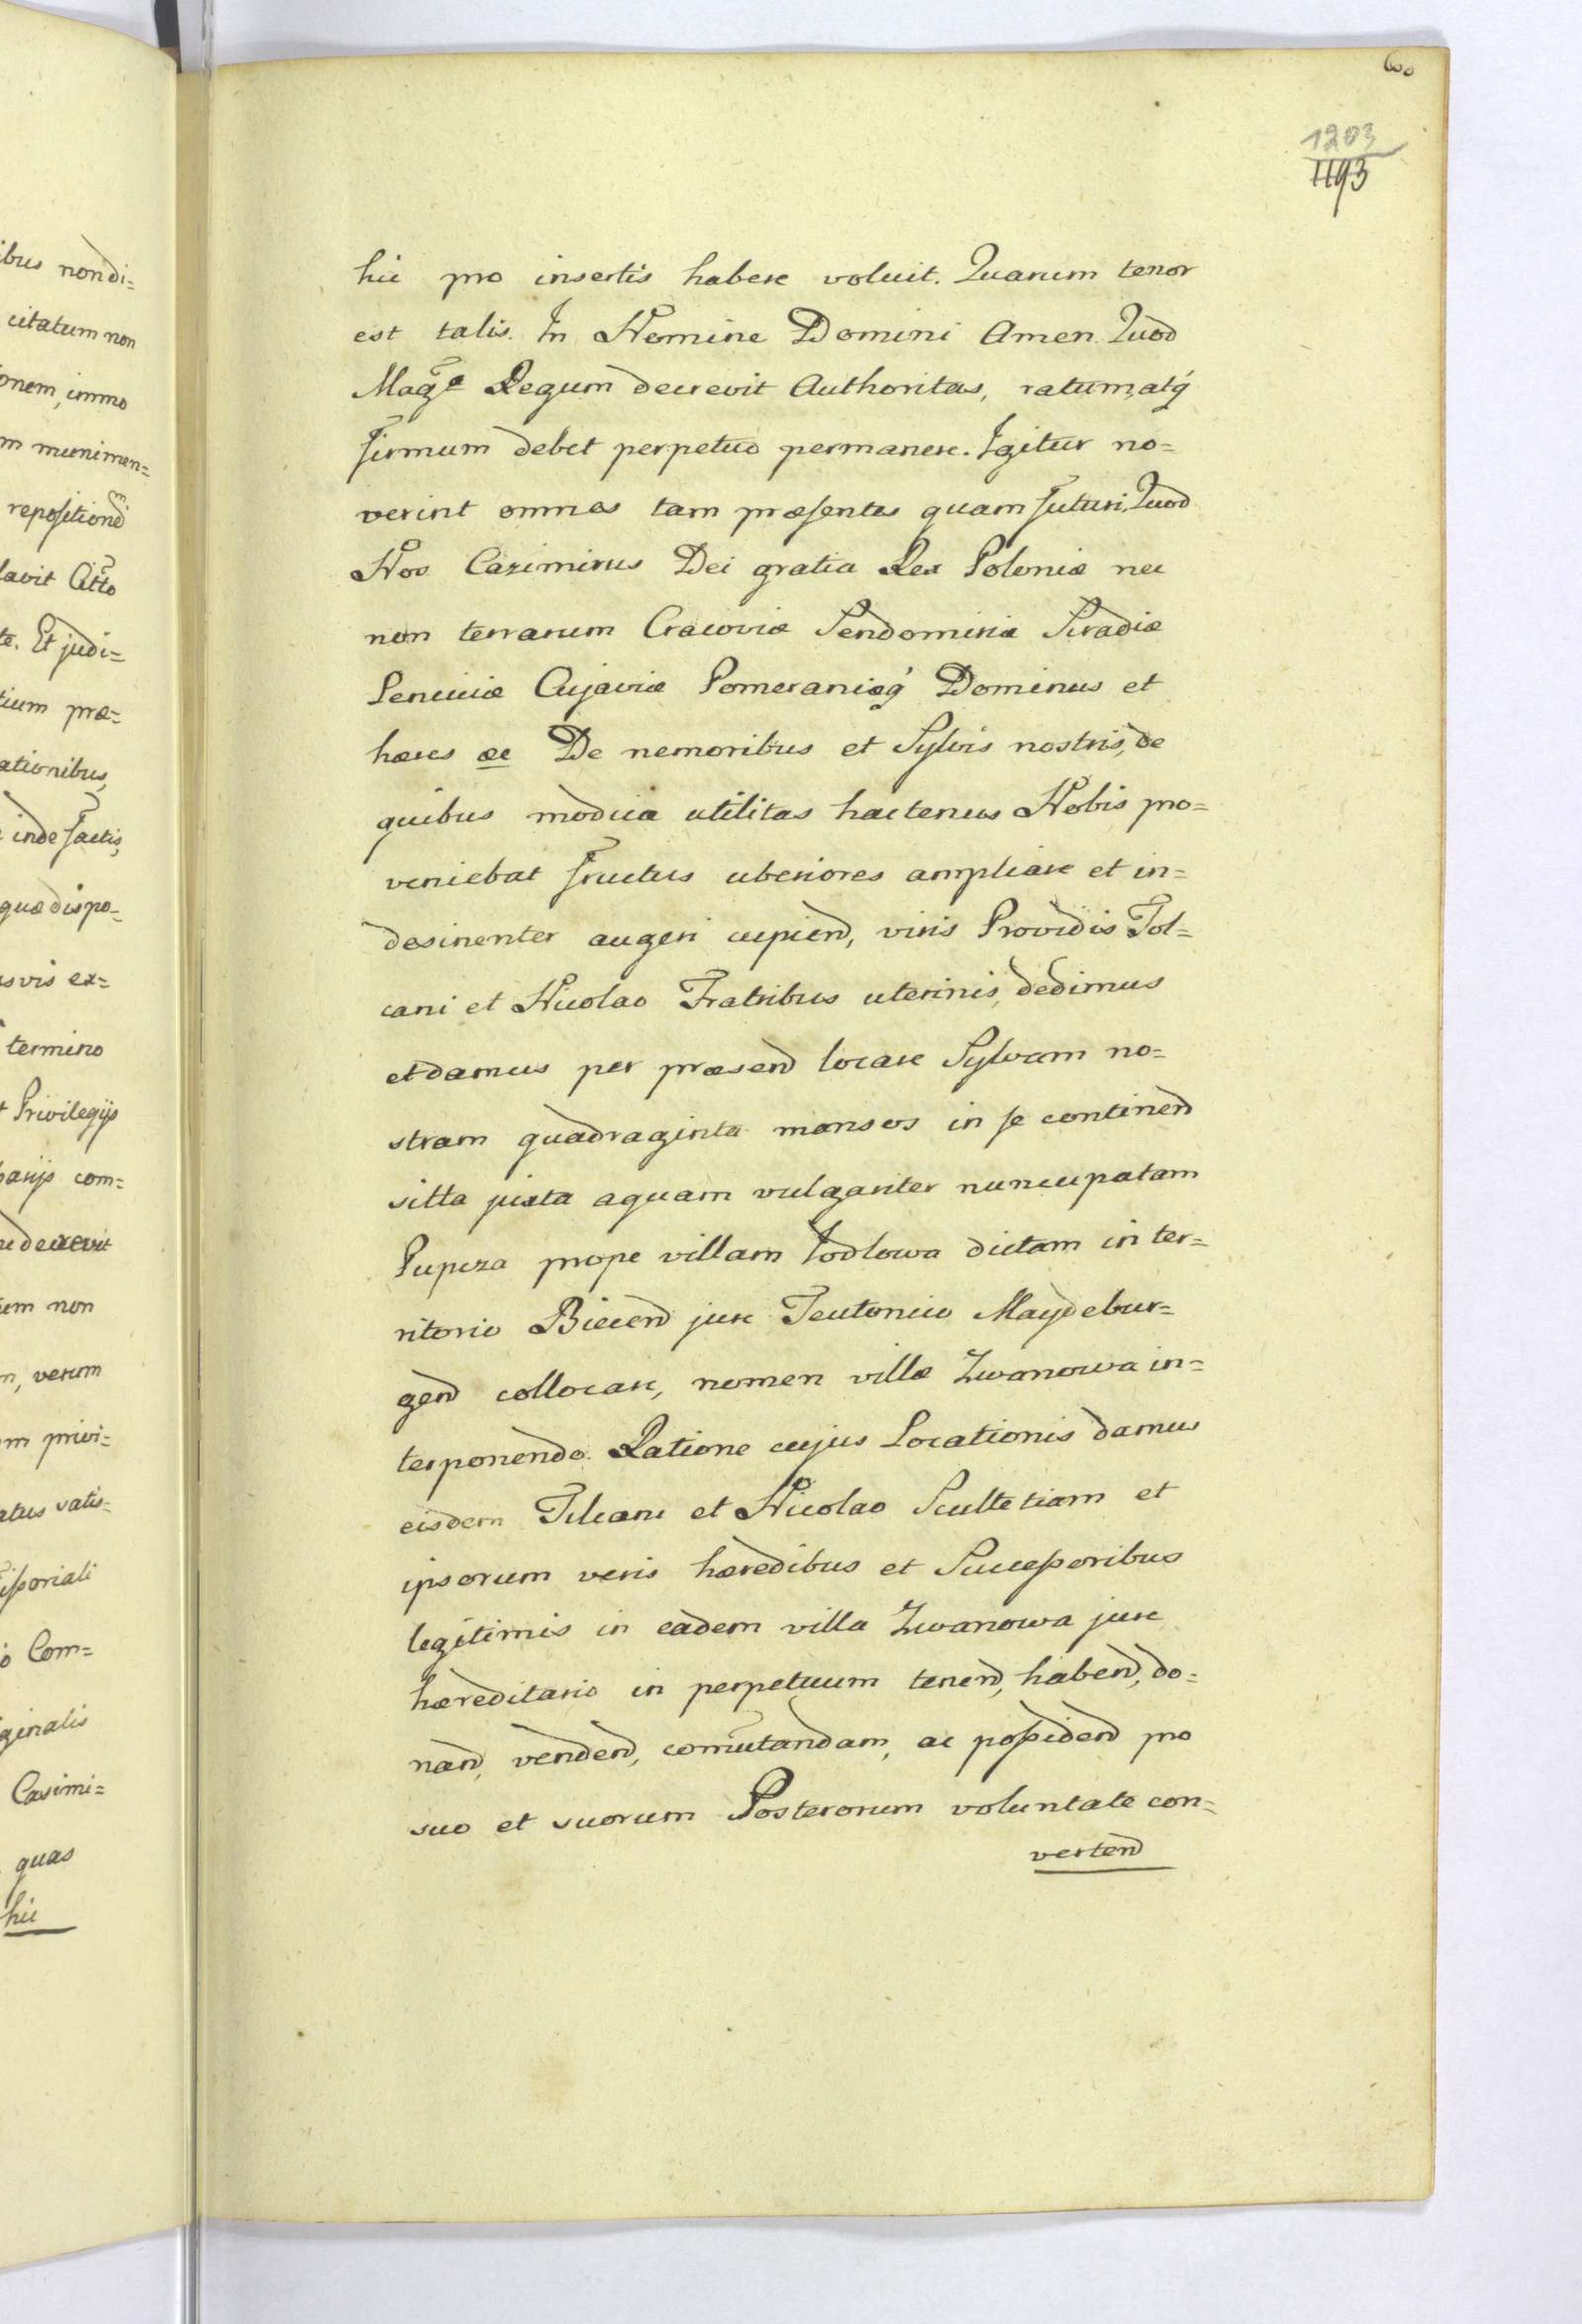 ibus nondi=
citatum non
onem, immo
m munimen=
repositione
lavit Atto
te. Et judi=
tium præ=
ationibus,
inde factis,
quæ dispo=
usvis ex=
termino
t Privilegijs
parijs com=
decrevit
um non
m, verum
m privi=
atus vatis=
issoriali
o Com=
ginalis
Casimi=
quas
hic
600
1203
1193
hic pro insertis habere voluit. Quarum tenor
est talis. In Nomine Domini Amen Quod
Magª Regum decrevit Authoritas, ratum, atq́
firmum debet perpetuo permanere. Igitur no=
verint omnes tam præsentes quam futuri, Quod
Nos Cazimirus Dei gratia Rex Poloniæ nec
non terrarum Cracoviæ Sendomiriæ Siradiæ
Lenciciæ Cujaviæ Pomeraniæq́ Dominus et
hæres æc De nemoribus et Sylvis nostris, de
quibus modica utilitas hactenus Nobis pro=
veniebat fructus uberiores ampliare et in=
desinenter augeri cupiend, viris Providis Tol=
cani et Nicolao Fratribus uterinis, dedimus
et damus per præsend locare Sylvam no=
stram quadraginta mansos in se continend
sitta juxta aquam vulgariter nuncupatam
Pupcza prope villam Jodlowa dictam in ter=
ritorio Biecend jure Teutonico Maydebur=
gend collocare, nomen villæ Zwanowa in=
terponendo. Ratione cujus Locationis damus
eisdem Tilcani et Nicolao Scultetiam et
ipsorum veris hæredibus et Successoribus
legitimis in eadem villa Zwanowa jure
hæreditario in perpetuum tenend, habend, do=
nand, vendend, comutandam, ac possidend pro
suo et suorum Posterorum voluntate con=
vertend